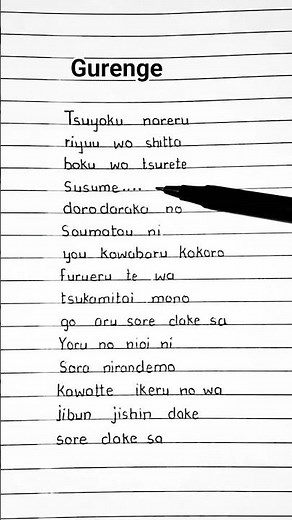 Gurenge
Tsuyoku nareru
riyuu wo shitta
boku wo tsurete
Susume....
dorodaraka no
Soumatou ni
you kawabaru kokoro
Furueru te wa
tsukamitai mono
ga aru sore dake sa
Yoru no nioi ni
Sora nirandemo
Kawatte ikeru no wa
jibun jishin dake
sore dake sa